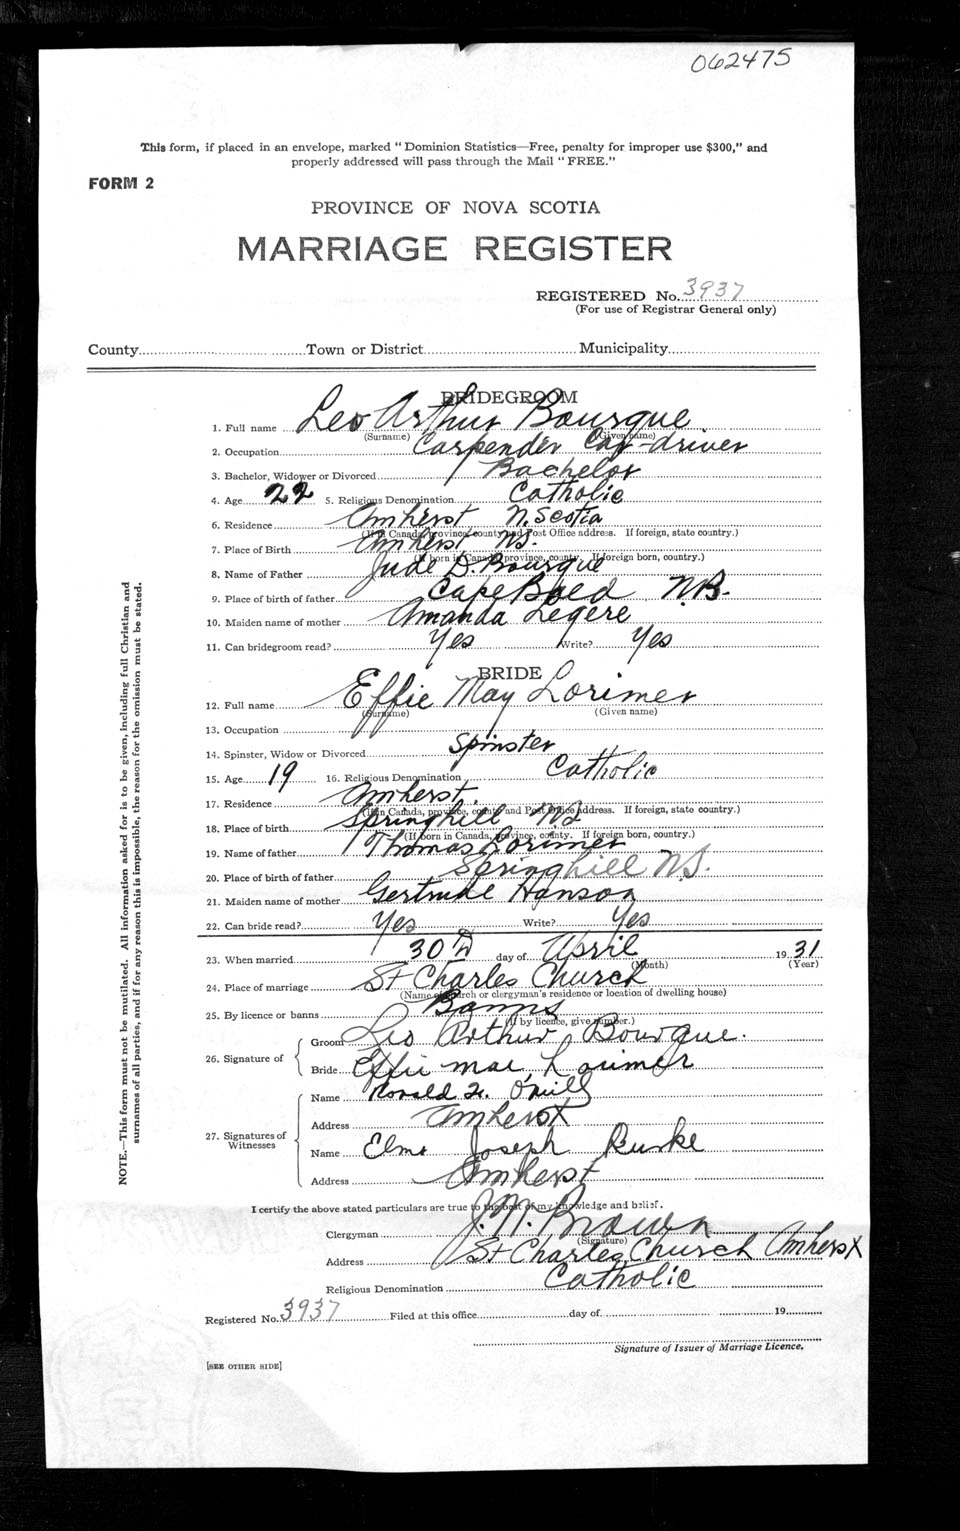 062475
This form, if placed in an envelope, marked "Dominion Statistics—Free, penalty for improper use $300," and
properly addressed will pass through the Mail "FREE."
FORM 2
PROVINCE OF NOVA SCOTIA
MARRIAGE REGISTER
REGISTERED No. 3937
(For use of Registrar General only)
County Town or District Municipality
BRIDEGROOM
1. Full name Leo Arthur Bourque
(Surname) (Given name)
2. Occupation Carpender driver
3. Bachelor, Widower or Divorced Bachelor
4. Age 22 5. Religious Denomination Catholic
6. Residence Amherst N. Scotia
(If in Canada, province, county and Post Office address. If foreign, state country.)
7. Place of Birth Amherst NS.
(If born in Canada, province, county. If foreign born, country.)
8. Name of Father Jude D. Bourque
9. Place of birth of father Cape Baed N.B.
10. Maiden name of mother Amanda Legere
11. Can bridegroom read? Yes Write? Yes
BRIDE
12. Full name Effie May Lorimer
(Surname) (Given name)
13. Occupation
14. Spinster, Widow or Divorced Spinster
15. Age 19 16. Religious Denomination Catholic
17. Residence Amherst
(If in Canada, province, county and Post Office address. If foreign, state country.)
18. Place of birth Springhill NS
(If born in Canada, province, county. If foreign born, country.)
19. Name of father Thomas Lorimer
20. Place of birth of father Springhill N.S.
21. Maiden name of mother Gertrude Hanson
22. Can bride read? Yes Write? Yes
23. When married 30th day of April 1931
(Month) (Year)
24. Place of marriage St Charles Church
(Name of church or clergyman's residence or location of dwelling house)
25. By licence or banns Banns
(If by licence, give number.)
26. Signature of
Groom Leo Arthur Bourque.
Bride Effie mae Lorimer
27. Signatures of Witnesses
Name Ronald O'neill
Address Amherst
Name Elmo Joseph Burke
Address Amherst
I certify the above stated particulars are true to the best of my knowledge and belief.
Clergyman J. N. Brown
(Signature)
Address St Charles Church Amherst
Religious Denomination Catholic
Registered No. 3937 Filed at this office day of 19
Signature of Issuer of Marriage Licence.
[SEE OTHER SIDE]
NOTE.—This form must not be mutilated. All information asked for is to be given, including full Christian and
surnames of all parties, and if for any reason this is impossible, the reason for the omission must be stated.